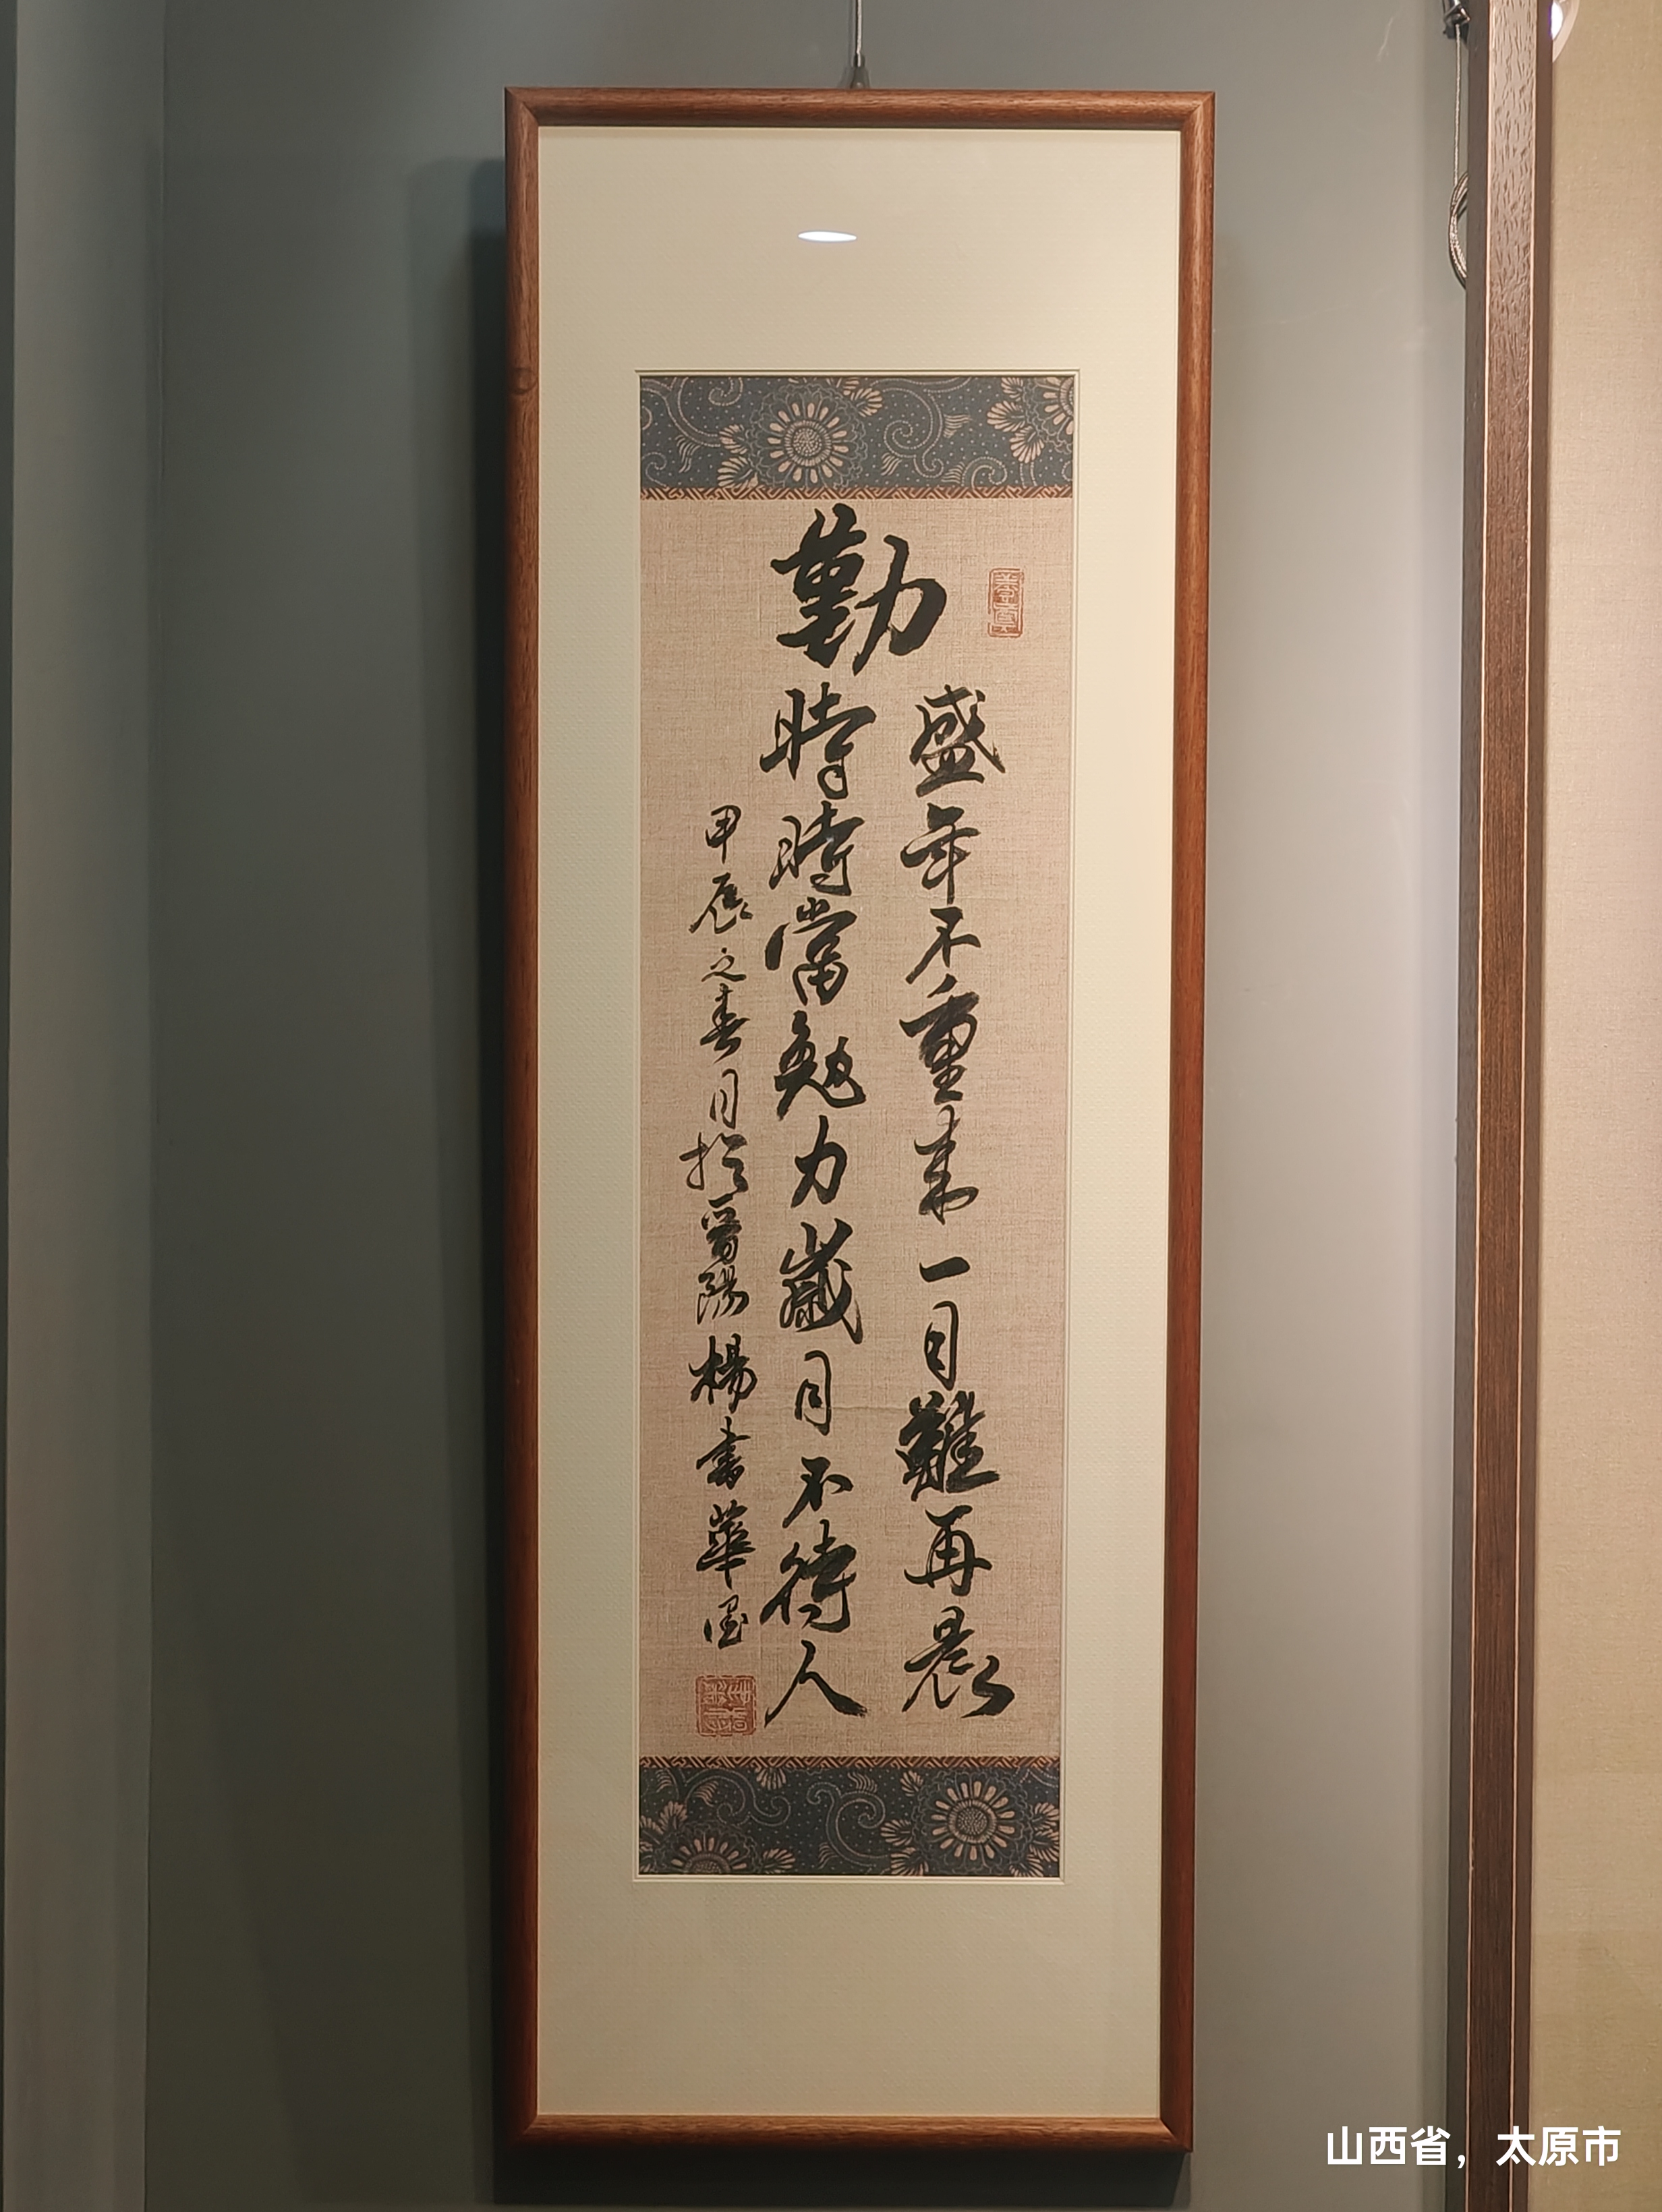 勤
盛年不重來一日難再晨
時時當勉力歲月不待人
甲辰之春月於晉陽楊書華墨
山西省，太原市